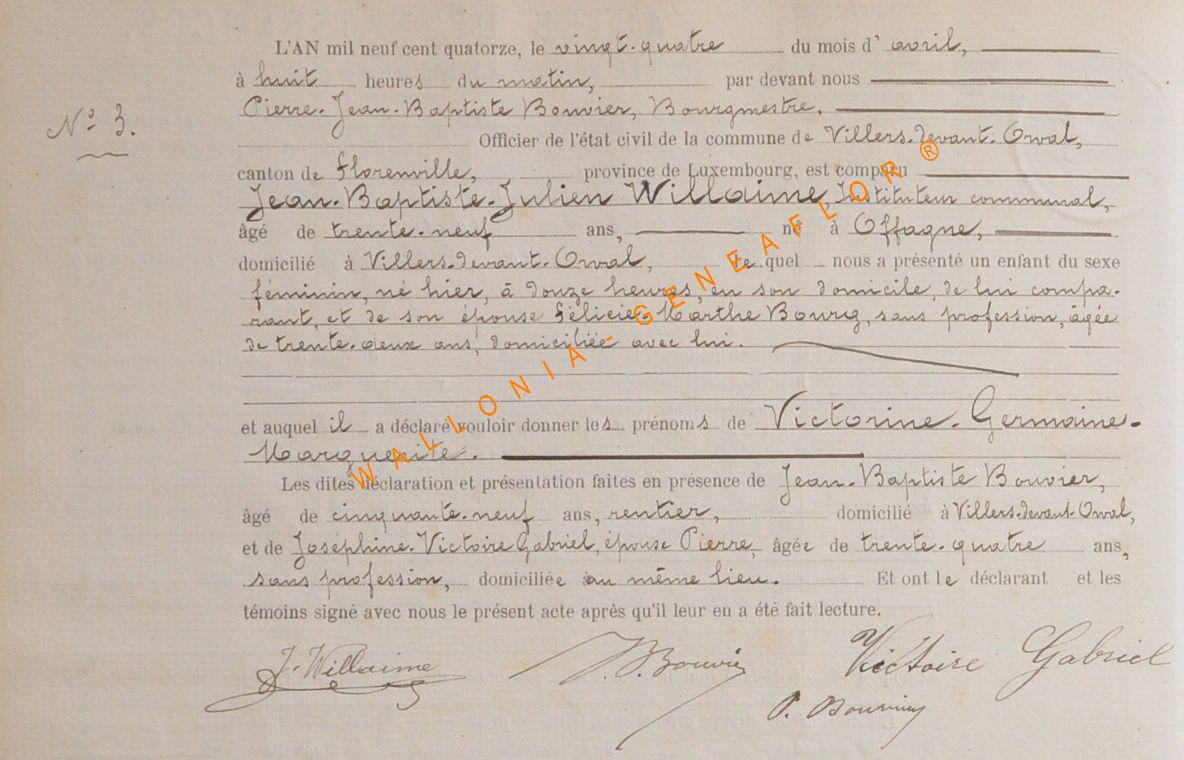 L'AN mil neuf cent quatorze, le vingt-quatre du mois d' avril,
à huit heures du matin, par devant nous
Pierre-Jean-Baptiste Bouvier, Bourgmestre,
N° 3.
Officier de l'état civil de la commune de Villers-devant-Orval,
canton de Florenville, province de Luxembourg, est comparu
Jean-Baptiste-Julien Willaime, Instituteur communal,
âgé de trente-neuf ans, né à Offagne,
domicilié à Villers-devant-Orval, le quel nous a présenté un enfant du sexe
féminin, né hier, à douze heures, en son domicile, de lui compa-
rant, et de son épouse Félicie-Marthe Bourg, sans profession, âgée
de trente-deux ans, domiciliée avec lui.
et auquel il a déclaré vouloir donner les prénoms de Victorine-Germaine-
Marguerite.
Les dites déclaration et présentation faites en présence de Jean-Baptiste Bouvier,
âgé de cinquante-neuf ans, rentier, domicilié à Villers-devant-Orval,
et de Joséphine-Victoire Gabriel, épouse Pierre, âgée de trente-quatre ans,
sans profession, domiciliée au même lieu. Et ont le déclarant et les
témoins signé avec nous le présent acte après qu'il leur en a été fait lecture.
J. Willaime J.B. Bouvier Victoire Gabriel
P. Bouvier
WALLONIA - GENEAFLOR ®